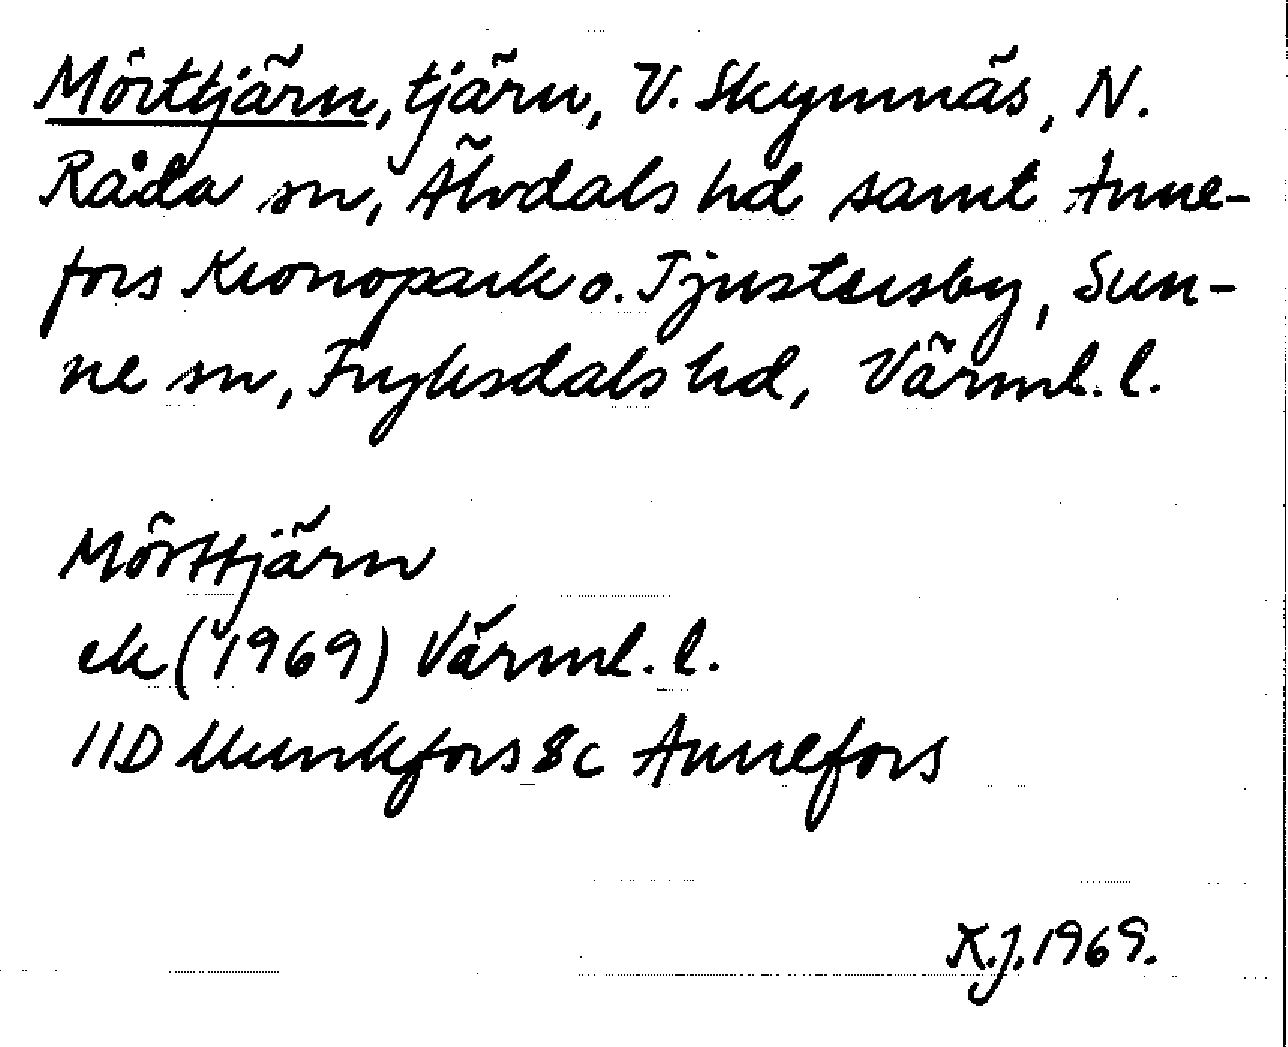 Mörttjärn, tjärn, V. Skymnäs, N.
Råda sn, Älvdals hd samt Anne-
fors Kronopark o. Tjustersby, Sun-
ne sn, Fryksdals hd, Värml. l.
Mörttjärn
ek (1969) Värml. l.
11D Munkfors 8c Annefors
K.J. 1969.